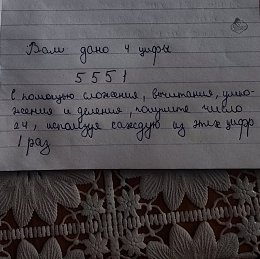 Вам дано 4 цифры
5 5 5 1
С помощью сложения, вычитания, умно-
жения и деления, получите число
24, используя каждую из этих цифр
1 раз